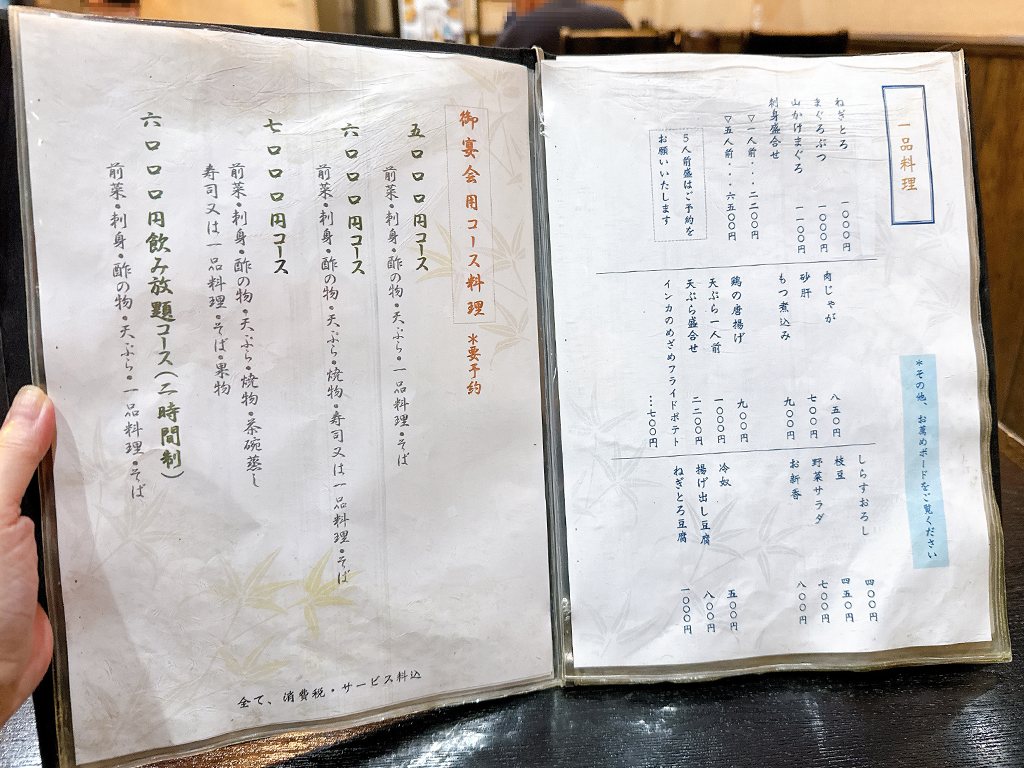 一品料理
*その他、お薦めボードをご覧ください
ねぎとろ 一〇〇〇円
まぐろぶつ 一〇〇〇円
山かけまぐろ 一一〇〇円
刺身盛合せ
▽一人前・・・二二〇〇円
▽五人前・・・六五〇〇円
5人前盛はご予約を
お願いいたします
肉じゃが 八五〇円
砂肝 七〇〇円
もつ煮込み 九〇〇円
鶏の唐揚げ 九〇〇円
天ぷら一人前 一〇〇〇円
天ぷら盛合せ 二二〇〇円
インカのめざめフライドポテト …七〇〇円
しらすおろし 四〇〇円
枝豆 四五〇円
野菜サラダ 七〇〇円
お新香 八〇〇円
冷奴 五〇〇円
揚げ出し豆腐 八〇〇円
ねぎとろ豆腐 一〇〇〇円
御宴会用コース料理 *要予約
五〇〇〇円コース
前菜・刺身・酢の物・天ぷら・一品料理・そば
六〇〇〇円コース
前菜・刺身・酢の物・天ぷら・焼物・寿司又は一品料理・そば
七〇〇〇円コース
前菜・刺身・酢の物・天ぷら・焼物・茶碗蒸し
寿司又は一品料理・そば・果物
六〇〇〇円飲み放題コース(二時間制)
前菜・刺身・酢の物・天ぷら・一品料理・そば
全て、消費税・サービス料込